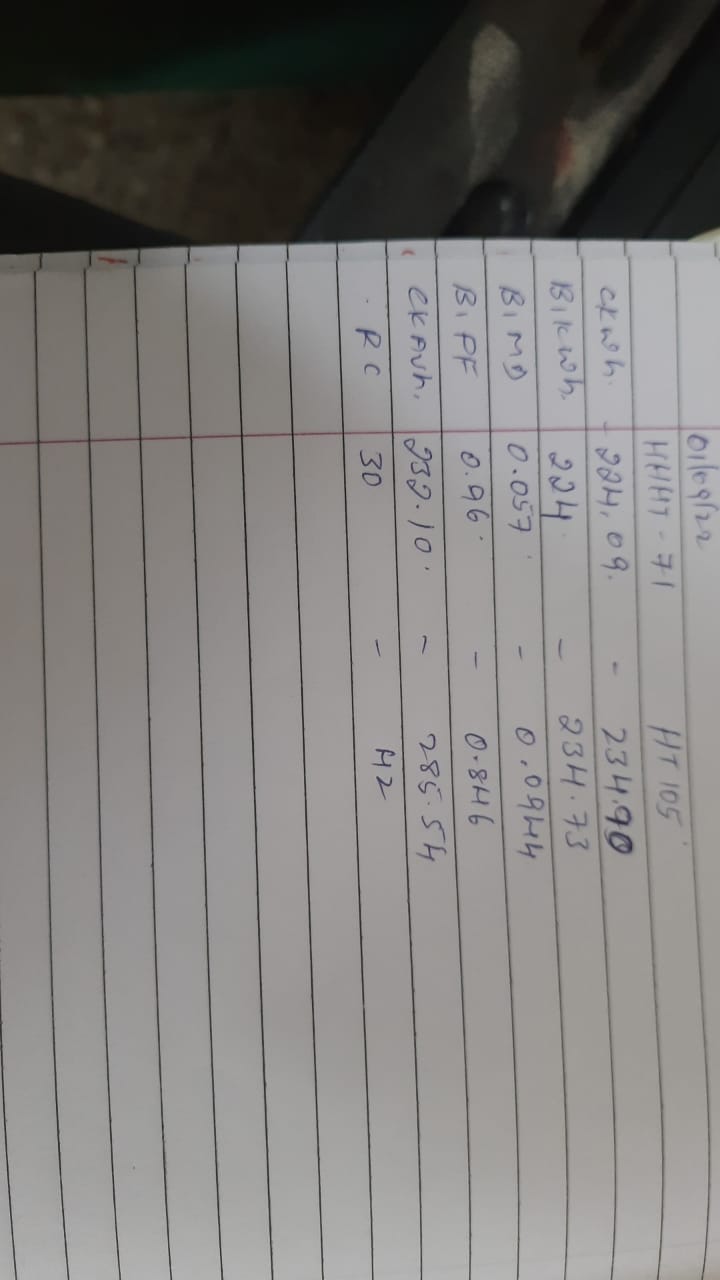 01/09/22
HHHT - 71 HT 105
CKWh. - 224.09. - 234.90
B1 KWh. 224. - 234.73
B1 MD 0.057 - 0.0944
B1 PF 0.96 - 0.846
CKAVh. 232.10 - 285.54
RC 30 - 42